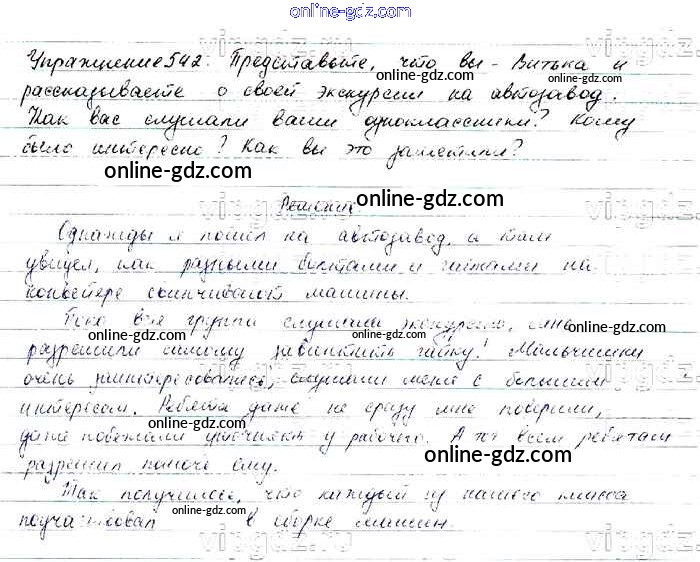 online-gdz.com
Упражнение 542. Представьте, что вы - Витька и
online-gdz.com
рассказываете о своей экскурсии на автозавод.
Как вас слушали ваши одноклассники? Кому
было интересно? Как вы это заметили?
online-gdz.com
Решение
online-gdz.com
Однажды я пошел на автозавод, а там
увидел, как разными болтами и гайками на
конвейере свинчивают машины.
Пока вся группа слушала экскурсию, мне
online-gdz.com
online-gdz.com
разрешили самому завинтить гайку! Мальчишки
очень заинтересовались, слушали меня с большим
интересом. Ребята даже не сразу мне поверили,
даже побежали уточнять у рабочего. А тот всем ребятам
online-gdz.com
разрешил помочь ему.
Так получилось, что каждый из нашего класса
online-gdz.com
поучаствовал в сборке машин.
online-gdz.com